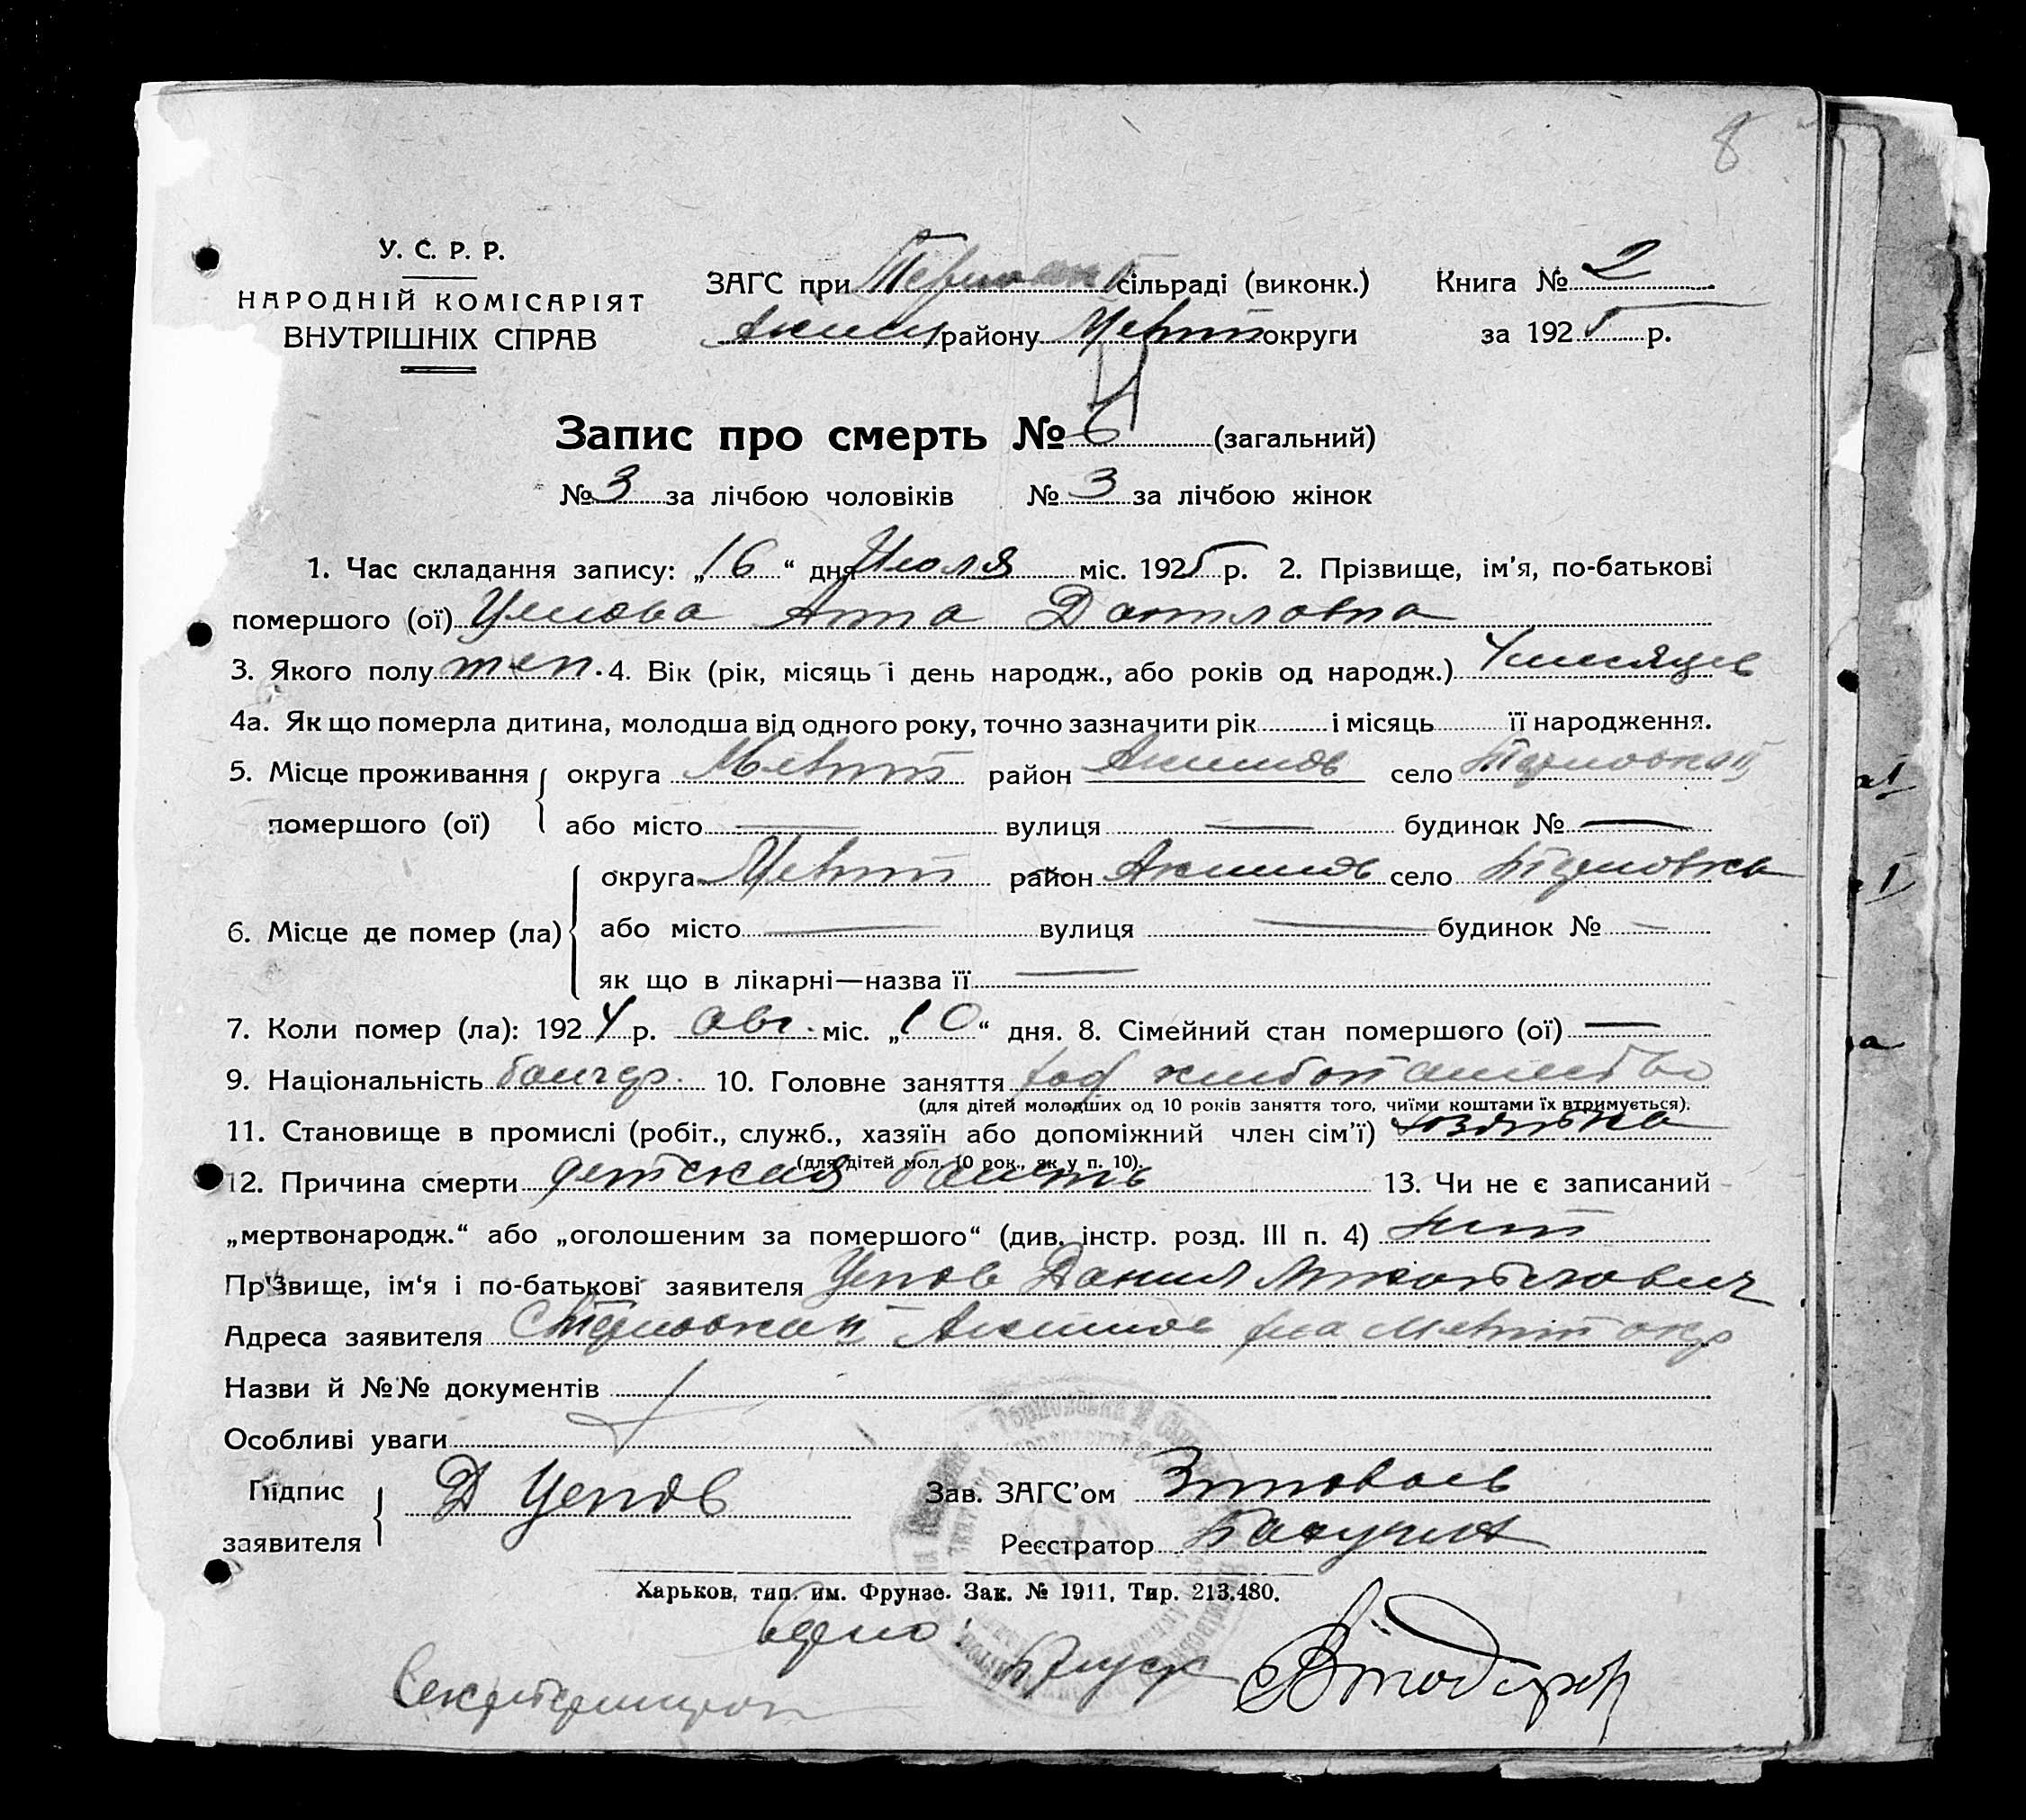 8
У. С. Р. Р.
НАРОДНІЙ КОМІСАРІЯТ
ВНУТРІШНІХ СПРАВ
ЗАГС при сільраді (виконк.) Книга № 2
Аким району округи за 1925 р.
Запис про смерть № 6 (загальний)
№ 3 за лічбою чоловіків № 3 за лічбою жінок
1. Час складання запису: „16“ дня Июля міс. 1925 р. 2. Прізвище, ім'я, по-батькові
помершого (ої) Анна Даниловна
3. Якого полу жен. 4. Вік (рік, місяць і день народж., або років од народж.) 4 месяцев
4а. Як що померла дитина, молодша від одного року, точно зазначити рік і місяць її народження.
5. Місце проживання округа Мелит район Акимов село
помершого (ої) або місто — вулиця — будинок № —
округа Мелит район Акимов село
6. Місце де помер (ла) або місто — вулиця — будинок № —
як що в лікарні—назва її —
7. Коли помер (ла): 1924 р. авг. міс. „10“ дня. 8. Сімейний стан помершого (ої) —
9. Національність болгар. 10. Головне заняття хлебопашество
(для дітей молодших од 10 років заняття того, чиїми коштами їх втримується).
11. Становище в промислі (робіт., служб., хазяїн або допоміжний член сім'ї)
(для дітей мол. 10 рок., як у п. 10).
12. Причина смерти детская болезнь 13. Чи не є записаний
„мертвонародж.“ або „оголошеним за помершого“ (див. інстр. розд. III п. 4) нет
Прізвище, ім'я і по-батькові заявителя Ценов Данил
Адреса заявителя Акимов Мелит окр
Назви й №№ документів
Особливі уваги
Підпис Д Ценов Зав. ЗАГС'ом
заявителя Реєстратор
Харьков, тип. им. Фрунзе. Зак. № 1911, Тир. 213.480.